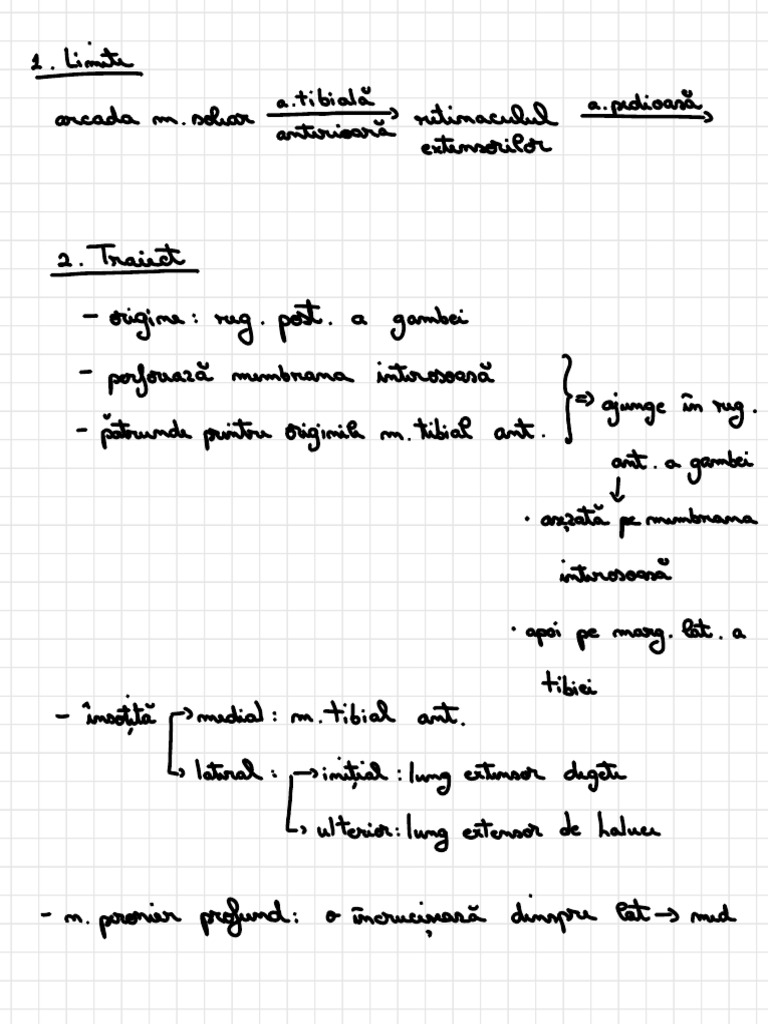 1. Limite
arcada m. solear a. tibială anterioară → retinaculul extensorilor a. pedioasă →
2. Traiect
- origine: reg. post. a gambei
- perforează membrana interosoasă
- pătrunde printre originile m. tibial ant.
} => ajunge în reg.
ant. a gambei
↓
· așezată pe membrana
interosoasă
· apoi pe marg. lat. a
tibiei
- însoțită → medial: m. tibial ant.
→ lateral: → inițial: lung extensor degete
→ ulterior: lung extensor de haluce
- n. peronier profund: o încrucișează dinspre lat → med